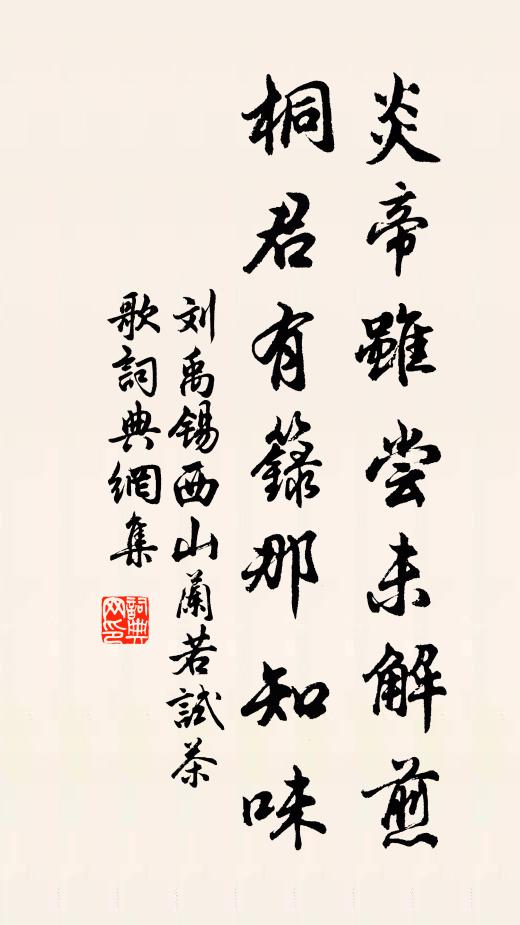 炎帝雖尝未解煎
桐君有籙那知味
刘禹锡西山蘭若試茶
歌詞典網集
詞典网印